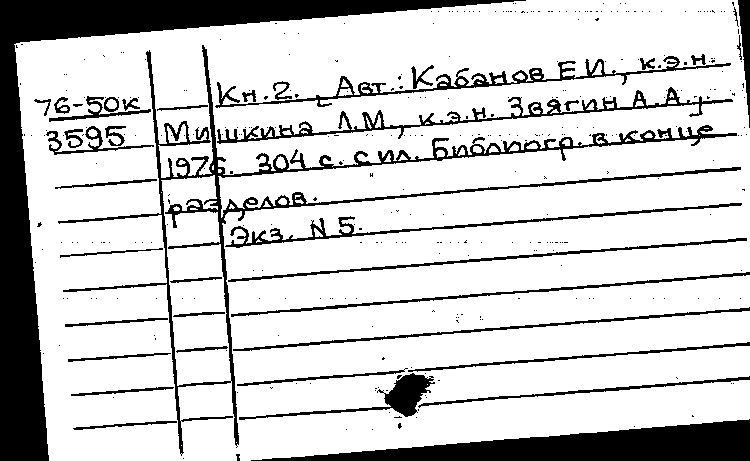 76-50к Кн.2. [Авт.: Кабанов Е.И., к.э.н.
3595 Мишкина Л.М., к.э.н. Звягин А.А.].
1976. 304 с. с ил. Библиогр. в конце
разделов.
Экз. N 5.